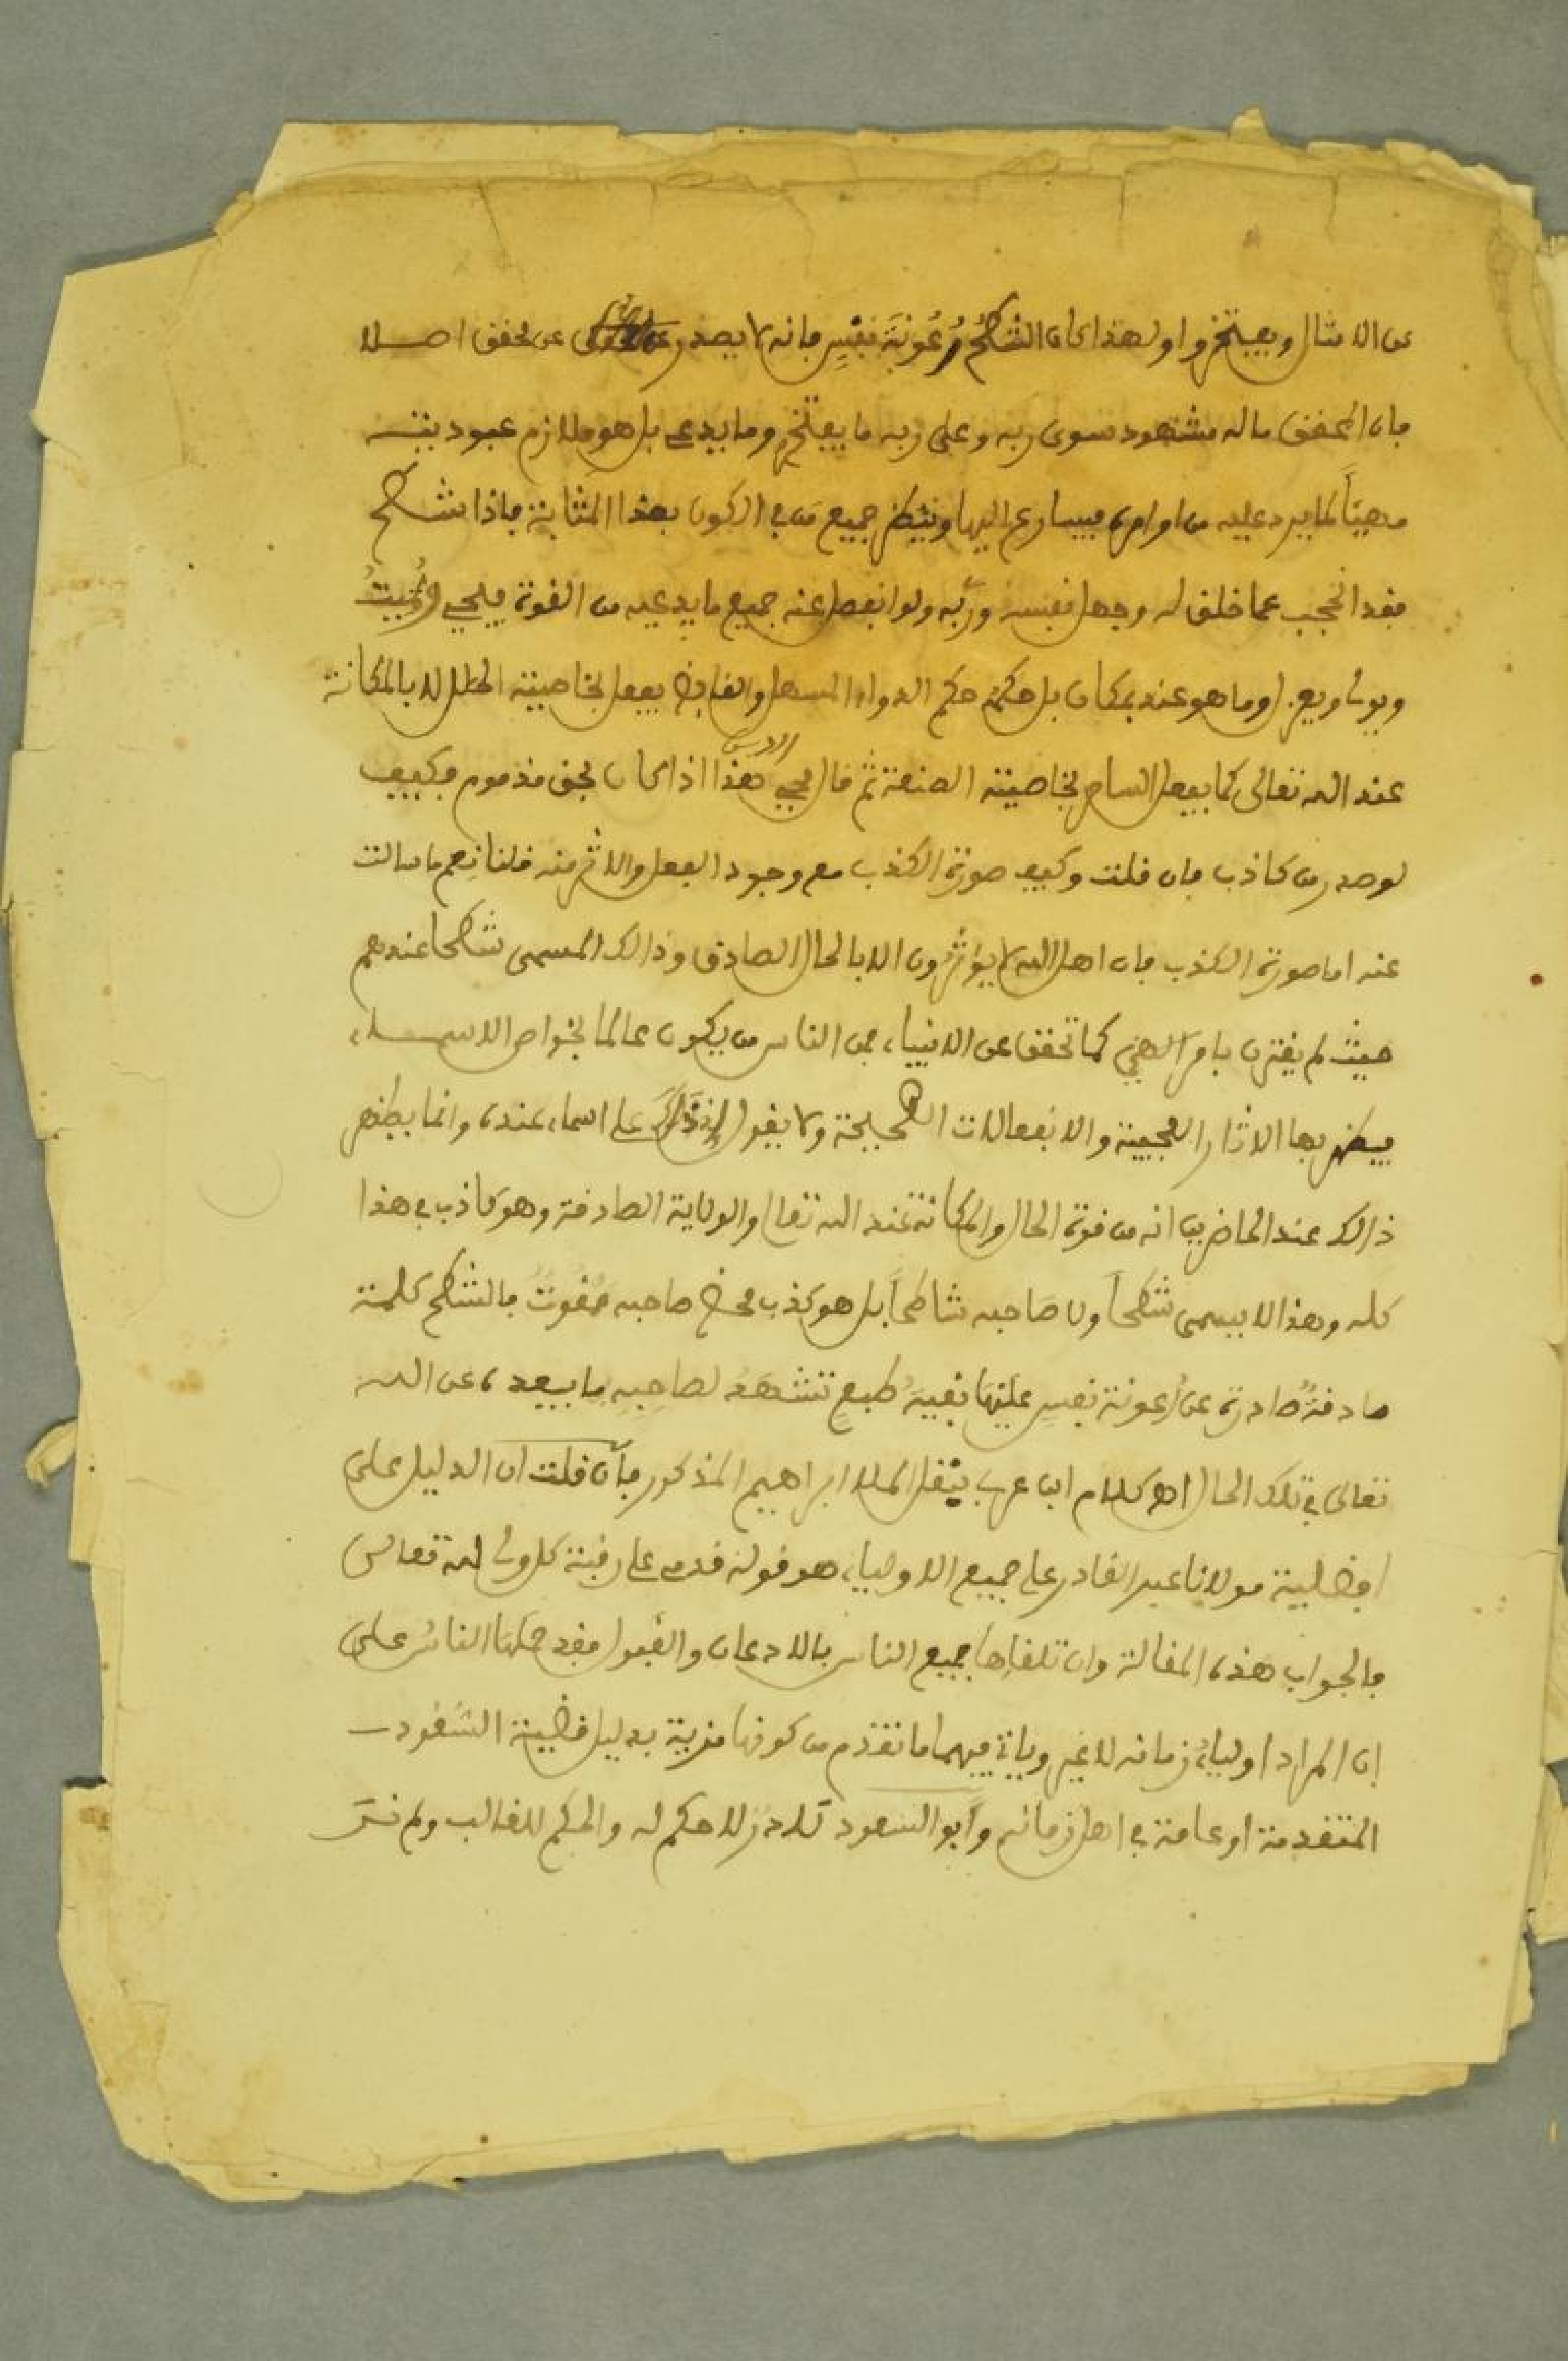 عن الامثال ويفتخروا ولهذا كان الشطح رُعُونَةَ نفسٍ فانه لا يصدر عن محقق اصلا
فان المحقق ماله مشهود سوى ربه وعلى ربه ما يفتخر وما يدعى بل هو ملازم عبوديته
مهيأً لما يرد عليه من اوامره فيسارع اليها وينظر جميع من في الكون بهذا المثابة فاذا شطح
فقد انحجب عما خلق له وجهل نفسه وربَّه ولو انفعل عنه جميع ما يدعيه من القوة فيحيي ويُميتُ
ويولى ويعزل وما هو عند بمكان بل حكمه حكم الدواء المسهل والقابض يفعل بخاصية الحال لا بالمكانة
عند الله تعالى كما يفعل الساحر بخاصية الصنعة ثم قال هذا اذا كان بحق مذموم فكيف
لو صدر من كاذب فان قلت وكيف صورة الكذب مع وجود الفعل والاثر منه قلنا نِعم ما سالت
عنه اما صورة الكذب فان اهل الله لا يؤثرون الا بالحال الصادق وذالك المسمى شطحا عندهم
حيث لم يقترن بامر الهي كما تحقق عن الانبياء فمن الناس من يكون عالما بخواص الاسماء
فيظهر بها الاثار العجيبة والانفعالات الصحيحة ولا يقول إن ذالك على اسماء عنده وانما يظهر
ذالك عند الحاضرين انه من قوة الحال والمكانة عند الله تعالى والولاية الصادقة وهو كاذب في هذا
كله وهذا لا يسمى شطحاً ولا صَاحبه شاطحاً بل هو كذب محض صاحبه مَمْقُوتٌ فالشطح كلمة
صادقةٌ صادرة عن رُعونة نفسٍ عليها بقيةُ طبعٍ تشهَدُ لصاحبِهِ ببعده عن الله
تعالى في تلك الحال اهـ كلام ابن عربي بنقل الملا ابراهيم المذكور فان قلت ان الدليل على
افضلية مولانا عبد القادر على جميع الاولياء هو قوله قدمي على رقبة كل ولى لله تعالى
فالجواب هذه المقالة وان تلقاها جميع الناس بالاذعان والقبول فقد حملها الناسُ على
ان المراد اولياءُ زمانه لا غير وياتي فيهما ما تقدم من كونها مزية بدليل قضية السُعود
المتقدمة او عامة في اهل زمانه وابو السعود نادر لا حكم له والحكم للغالب ولم نر